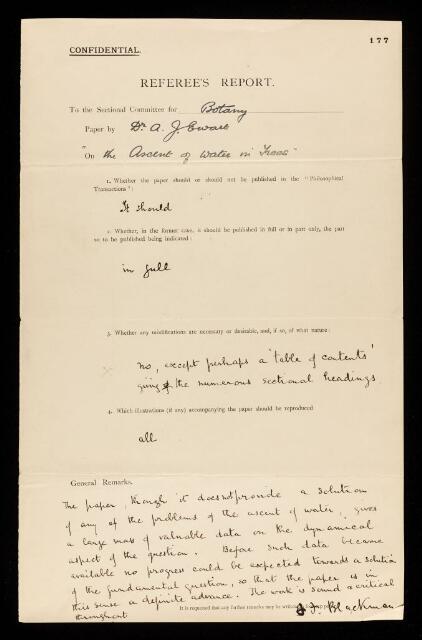 177
CONFIDENTIAL.
REFEREE'S REPORT.
To the Sectional Committee for Botany
Paper by Dr. A. J. Ewart
"On the Ascent of Water in Trees"
1. Whether the paper should or should not be published in the "Philosophical
Transactions":
It should
2. Whether, in the former case, it should be published in full or in part only, the part
so to be published being indicated:
in full
3. Whether any modifications are necessary or desirable, and, if so, of what nature:
no, except perhaps a 'table of contents'
giving the numerous sectional headings.
4. Which illustrations (if any) accompanying the paper should be reproduced
all
General Remarks.
The paper, though it does not provide a solution
of any of the problems of the ascent of water, gives
a large mass of valuable data on the dynamical
aspect of the question. Before such data became
available no progress could be expected towards a solution
of the fundamental question, so that the paper is in
this sense a definite advance. The work is sound & critical
throughout
It is requested that any further remarks may be written
F. F. Blackman